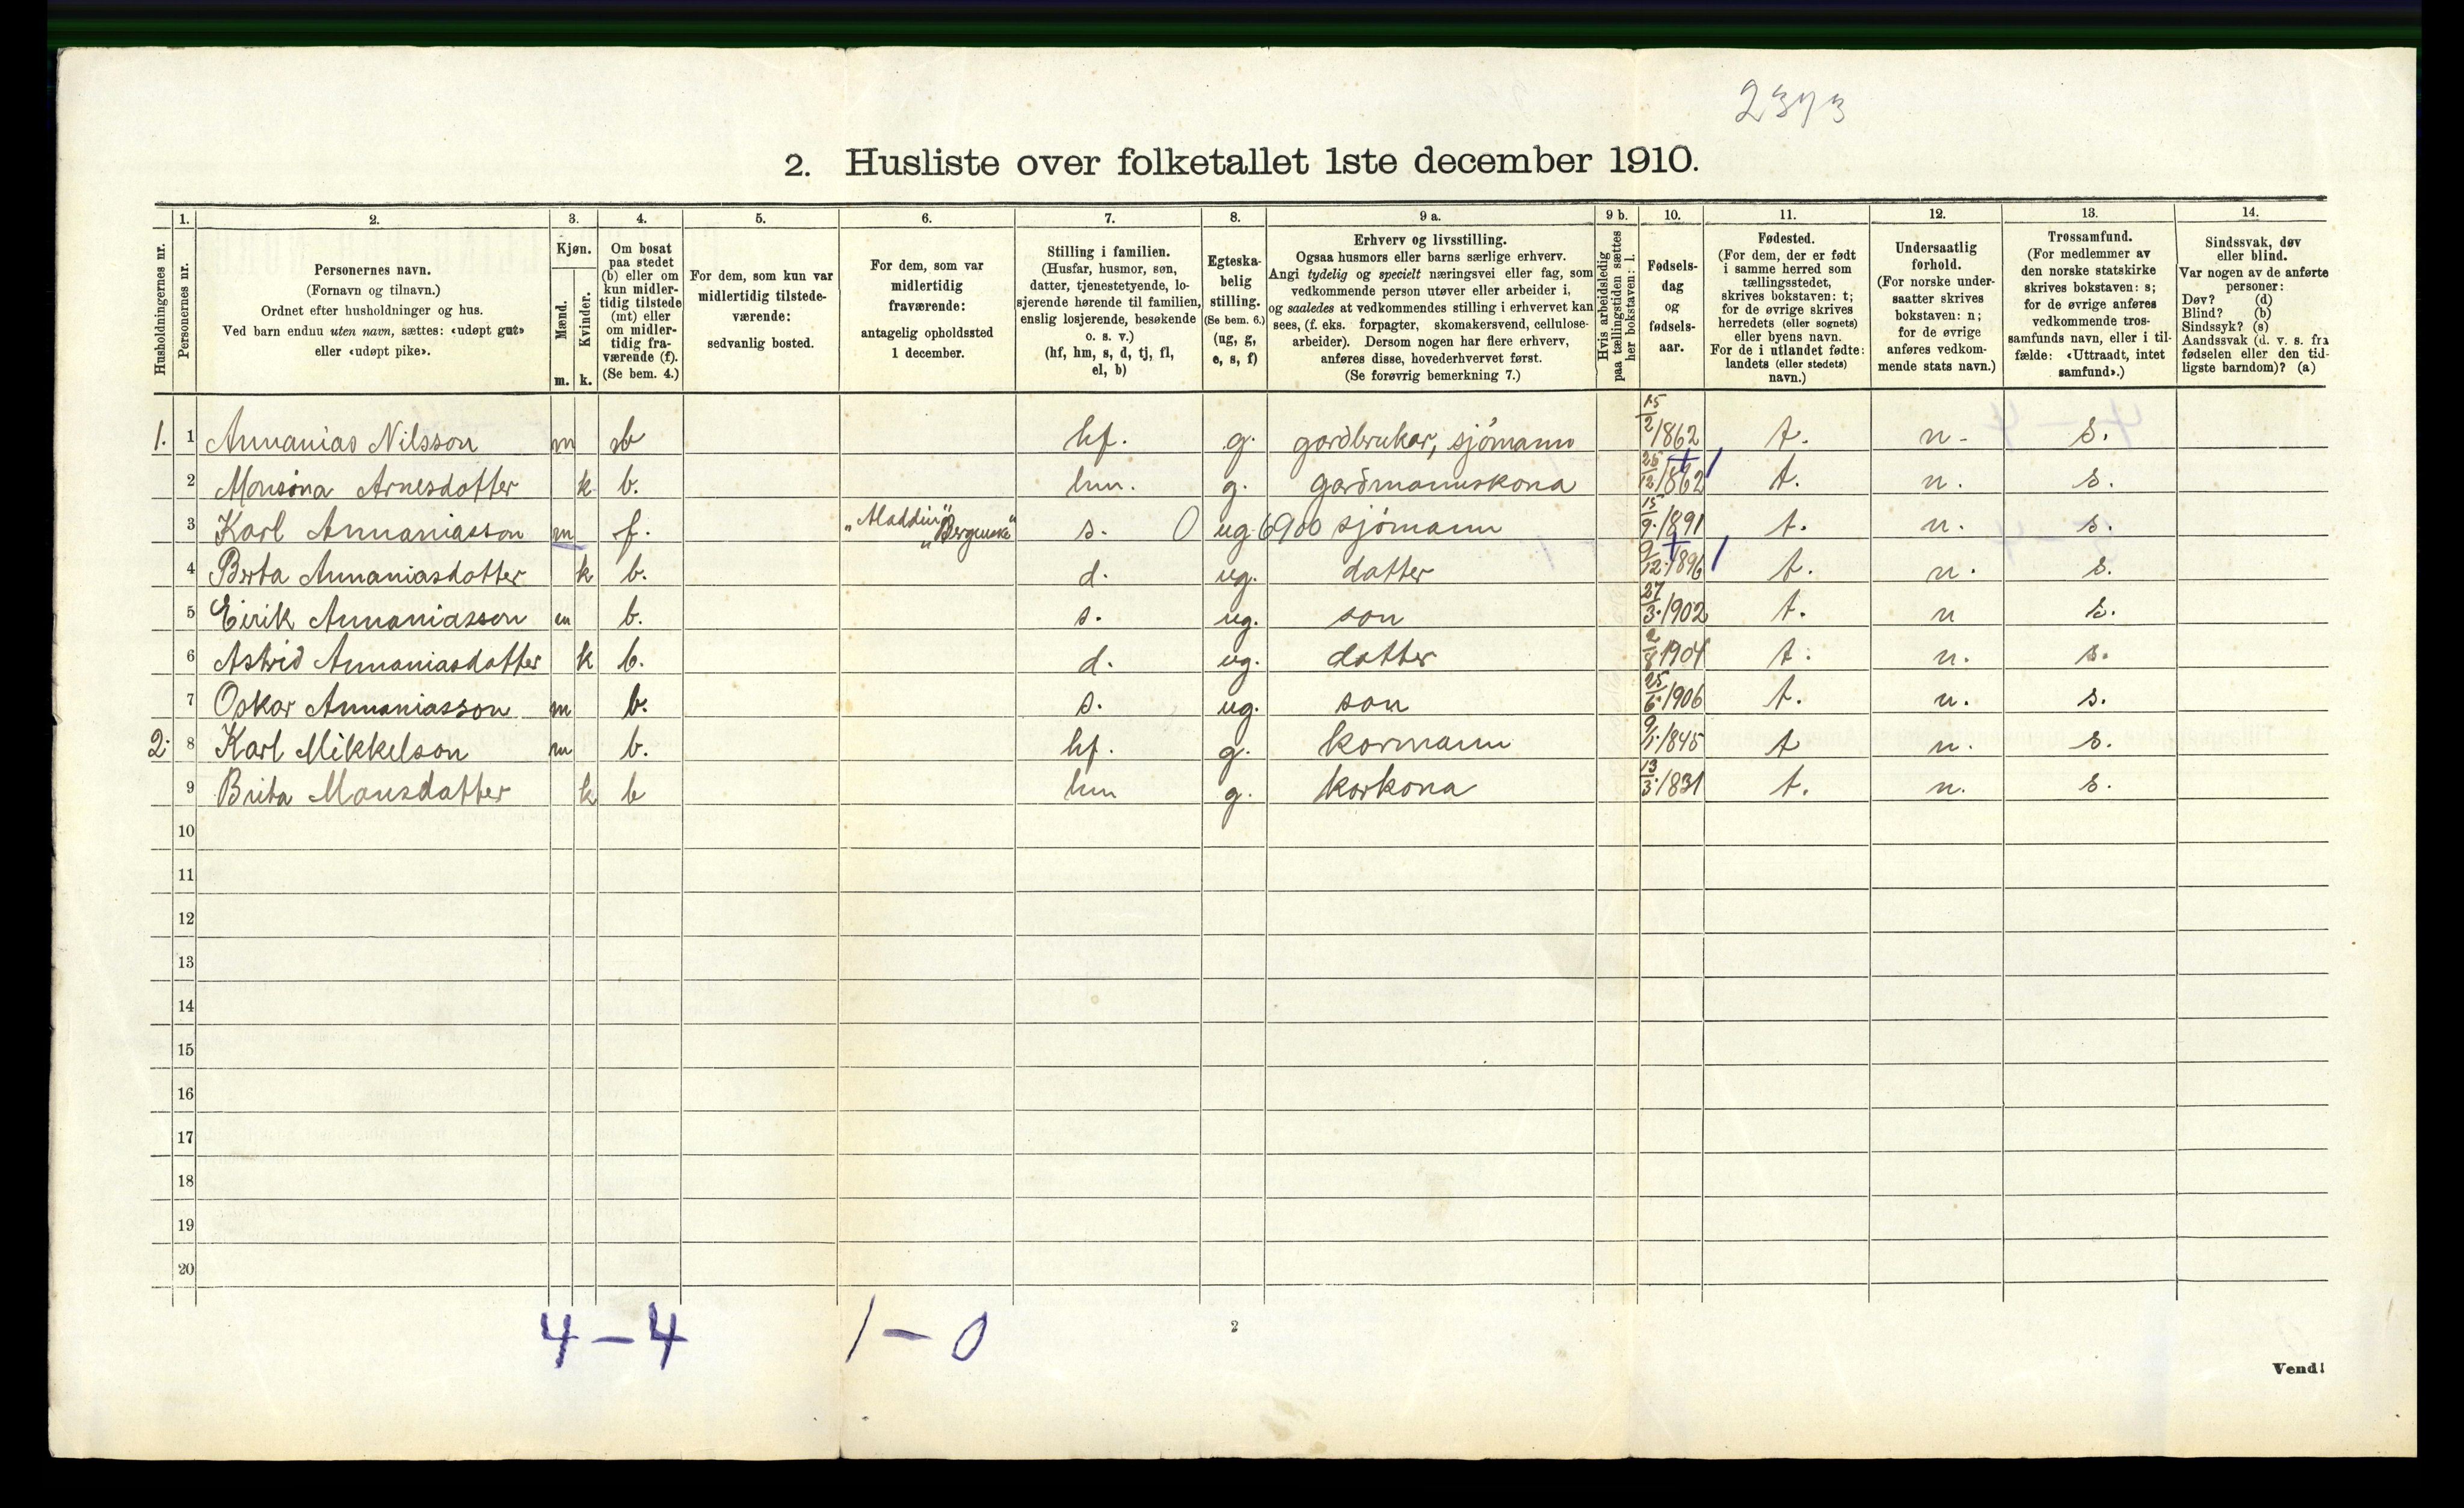 2373
2. Husliste over folketallet 1ste december 1910.
Husholdningernes nr.
1.
Personernes nr.
2.
Personernes navn.
(Fornavn og tilnavn.)
Ordnet efter husholdninger og hus.
Ved barn endnu uten navn, sættes: «udøpt gut»
eller «udøpt pike».
3.
Kjøn.
Mænd.
m.
Kvinder.
k.
4.
Om bosat
paa stedet
(b) eller om
kun midler-
tidig tilstede
(mt) eller
om midler-
tidig fra-
værende (f).
(Se bem. 4.)
5.
For dem, som kun var
midlertidig tilstede-
værende:
sedvanlig bosted.
6.
For dem, som var
midlertidig
fraværende:
antagelig opholdssted
1 december.
7.
Stilling i familien.
(Husfar, husmor, søn,
datter, tjenestetyende, lo-
sjerende hørende til familien,
enslig losjerende, besøkende
o. s. v.)
(hf, hm, s, d, tj, fl,
el, b)
8.
Egteska-
belig
stilling.
(Se bem. 6.)
(ug, g,
e, s, f)
9 a.
Erhverv og livsstilling.
Ogsaa husmors eller barns særlige erhverv.
Angi tydelig og specielt næringsvei eller fag, som
vedkommende person utøver eller arbeider i,
og saaledes at vedkommendes stilling i erhvervet kan
sees, (f. eks. forpagter, skomakersvend, cellulose-
arbeider). Dersom nogen har flere erhverv,
anføres disse, hovederhvervet først.
(Se forøvrig bemerkning 7.)
9 b.
Hvis arbeidsledig
paa tællingstiden sættes
her bokstaven: l.
10.
Fødsels-
dag
og
fødsels-
aar.
11.
Fødested.
(For dem, der er født
i samme herred som
tællingsstedet,
skrives bokstaven: t;
for de øvrige skrives
herredets (eller sognets)
eller byens navn.
For de i utlandet fødte:
landets (eller stedets)
navn.)
12.
Undersaatlig
forhold.
(For norske under-
saatter skrives
bokstaven: n;
for de øvrige
anføres vedkom-
mende stats navn.)
13.
Trossamfund.
(For medlemmer av
den norske statskirke
skrives bokstaven: s;
for de øvrige anføres
vedkommende tros-
samfunds navn, eller i til-
fælde: «Uttraadt, intet
samfund».)
14.
Sindssvak, døv
eller blind.
Var nogen av de anførte
personer:
Døv? (d)
Blind? (b)
Sindssyk? (s)
Aandssvak (d. v. s. fra
fødselen eller den tid-
ligste barndom)? (a)
1. 1 Annanias Nilsson m b hf. g. gardbrukar, sjómann 15/2 1862 t. n. s.
2 Monsina Arnesdotter k b. hm. g. gardmannskona 25/12 1862 t. n. s.
3 Karl Annaniasson m f. "Aladdin" "Bergenske" s. 0 ug 6900 sjómann 15/9 1891 t. n. s.
4 Berta Annaniasdotter k b. d. ug. dotter 9/12 1896 t. n. s.
5 Eirik Annaniasson m b. s. ug. son 27/3 1902 t. n s.
6 Astrid Annaniasdotter k b. d. ug. dotter 2/8 1904 t. n. s.
7 Oskar Annaniasson m b. s. ug. son 25/6 1906 t. n. s.
2. 8 Karl Mikkelson m b. hf. g. kormann 9/1 1845 t n. s.
9 Brita Monsdotter k b hm g. korkona 13/3 1831 t. n. s.
10
11
12
13
14
15
16
17
18
19
20
4 – 4 1 – 0
2
Vend!